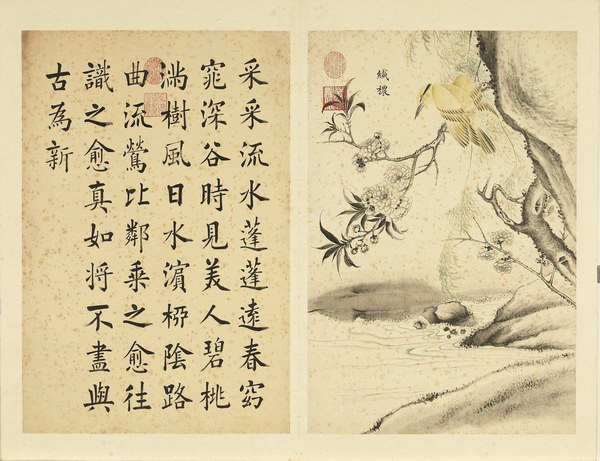 纖穠
采采流水蓬蓬遠春窈
窕深谷時見美人碧桃
滿樹風日水濱桺陰路
曲流鶯比鄰乘之愈往
識之愈真如將不盡與
古為新